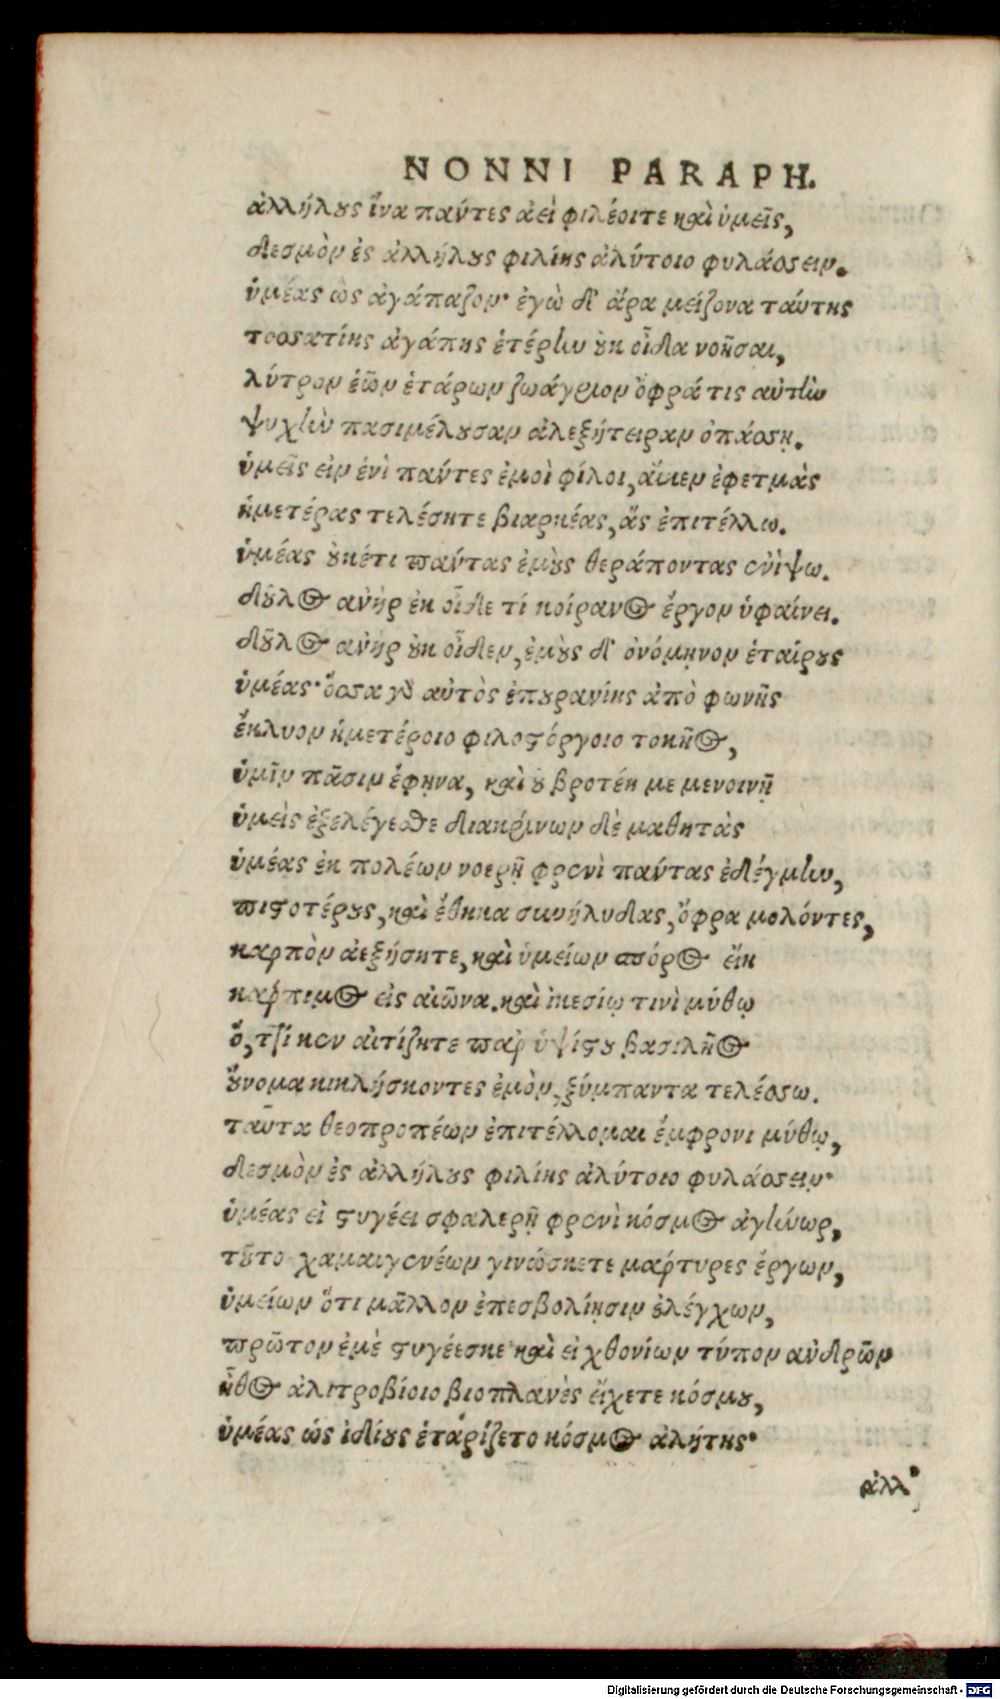 NONNI PARAPH.
ἀλλήλους ἵνα πάντες ἀεὶ φιλέοιτε καὶ ὑμεῖς,
δεσμὸν ἐς ἀλλήλους φιλίης ἀλύτοιο φυλάσσειν.
ὑμέας ὡς ἀγάπαζον· ἐγὼ δ' ἄρα μείζονα ταύτης
τοσσατίης ἀγάπης ἑτέρην οὐκ οἶδα νοῆσαι,
λύτρον ἑῶν ἑτάρων ζωάγριον ὄφρά τις αὐτὴν
ψυχὴν πασιμέλουσαν ἀλεξήτειραν ὀπάσσῃ.
ὑμεῖς εἰν ἑνὶ πάντες ἐμοὶ φίλοι, αἵκεν ἐφετμὰς
ἡμετέρας τελέσητε βιαρκέας, ἃς ἐπιτέλλω.
ὑμέας οὐκέτι πάντας ἐμοὺς θεράποντας ἐνίψω.
δοῦλος ἀνὴρ ἐκ οἶδε τί κοίρανος ἔργον ὑφαίνει.
δοῦλος ἀνὴρ οὐκ οἶδεν, ἐμοὺς δ' ὀνόμηνον ἑταίρους
ὑμέας· ὅσσα γὸ αὐτὸς ἐπουρανίης ἀπὸ φωνῆς
ἔκλυον ἡμετέροιο φιλοστόργοιο τοκῆος,
ὑμῖν πᾶσιν ἔφηνα, καὶ οὐ βροτέη με μενοινῇ
ὑμεὶς ἐξελέγεσθε διακρίνων δὲ μαθητὰς
ὑμέας ἐκ πολέων νοερῇ φρενὶ πάντας ἐδέγμην,
πιστοτέρους, καὶ ἔθηκα συνήλυδας, ὄφρα μολόντες,
καρπὸν ἀεξήσητε, καὶ ὑμείων σπόρος εἴη
κάρπιμος εἰς αἰῶνα. καὶ ἱκεσίῳ τινὶ μύθῳ
ὅ, τί κεν αἰτίζητε παρ ὑψίστου βασιλῆος
οὔνομα κικλήσκοντες ἐμὸν, ξύμπαντα τελέσσω.
ταῦτα θεοπροπέων ἐπιτέλλομαι ἔμφρονι μύθῳ,
δεσμὸν ἐς ἀλλήλους φιλίης ἀλύτοιο φυλάσσειν·
ὑμέας εἰ στυγέει σφαλερῇ φρενὶ κόσμος ἀγήνωρ,
τοῦτο χαμαιγενέων γινώσκετε μάρτυρες ἔργων,
ὑμείων ὅτι μᾶλλον ἐπεσβολίῃσιν ἐλέγχων,
πρῶτον ἐμὲ στυγέεσκε καὶ εἰ χθονίων τύπον ἀνδρῶν
ἦθος ἀλιτροβίοιο βιοπλανὲς εἴχετε κόσμου,
ὑμέας ὡς ἰδίους ἑταρίζετο κόσμος ἀλήτης·
ἀλλ'
Digitalisierung gefördert durch die Deutsche Forschungsgemeinschaft - DFG